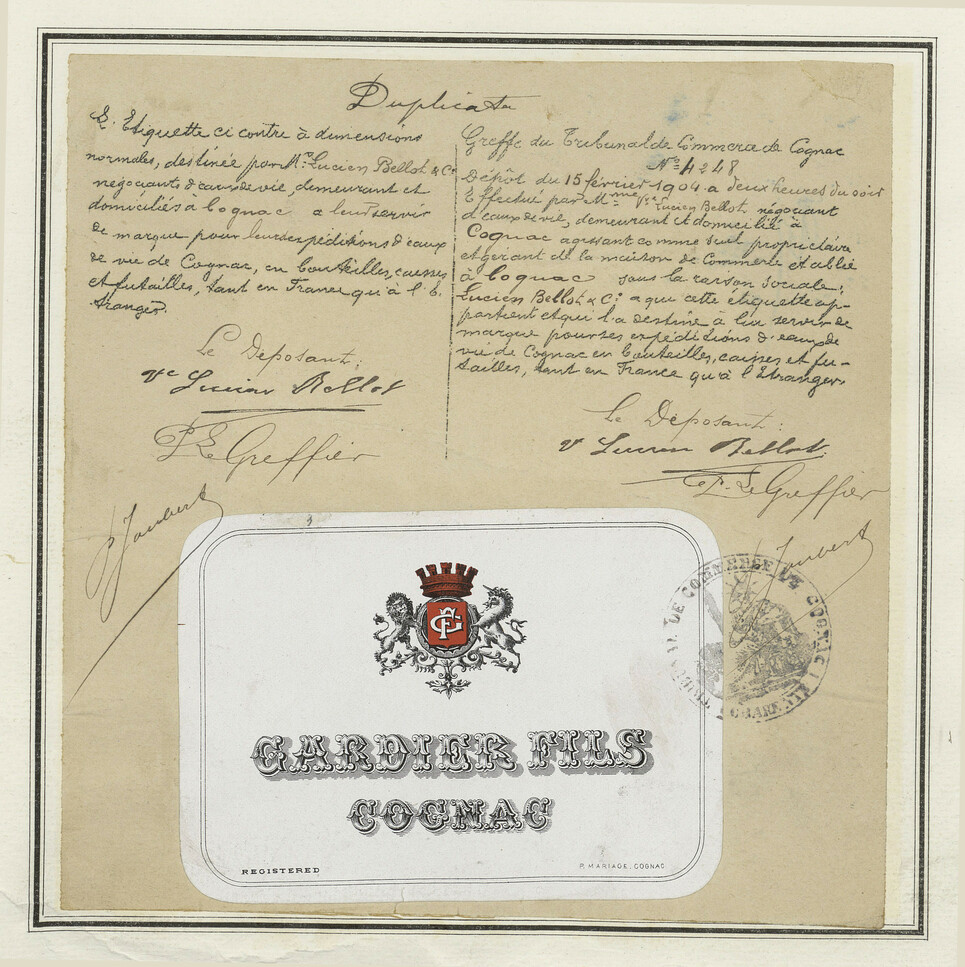 Duplicata
Etiquette ci contre à dimensions
normales, destinée par Mme Lucien Bellot & Cie
négociants d'eaux de vie, demeurant et
domiciliés à Cognac a leur servir
de marque pour leurs expéditions d'eaux
de vie de Cognac, en bouteilles, caisses
et futailles, tant en France qu'à l'E-
tranger.
Le Déposant:
Vve Lucien Bellot
P. Le Greffier
Joubert
Greffe du Tribunal de Commerce de Cognac
No 4248
Dépôt du 15 février 1904 a deux heures du soir
Effectué par Mme Vve Lucien Bellot négociant
d'eaux de vie, demeurant et domicilié à
Cognac agissant comme seul propriétaire
et gérant de la maison de Commerce établie
à Cognac sous la raison sociale:
Lucien Bellot & Cie a qui cette étiquette ap-
partient et qui l'a destine à lui servir de
marque pour ses expéditions d'eaux de
vie de Cognac en bouteilles, caisses et fu-
tailles, tant en France qu'à l'Etranger.
Le Déposant:
Vve Lucien Bellot
P. Le Greffier
Joubert
TRIBUNAL DE COMMERCE DE COGNAC
GARDIER FILS
COGNAC
REGISTERED
P. MARIAGE, COGNAC